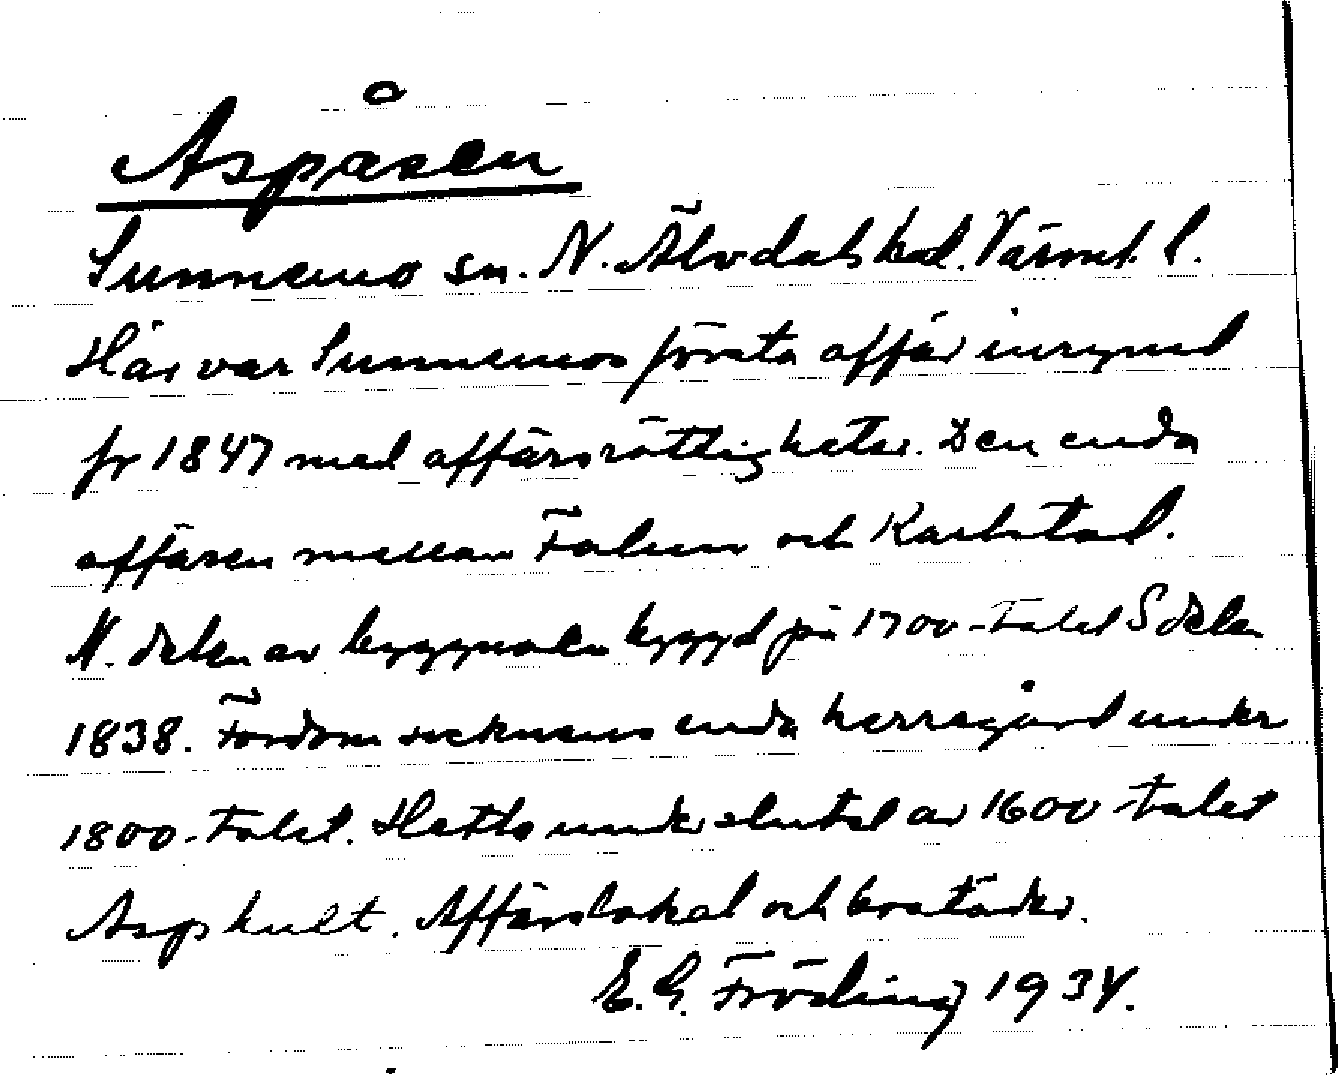 Aspåsen
Sunnemo sn. N. Älvdals hd. Värml. l.
Här var Sunnemos första affär inrymd
fr 1847 med affärsrättigheter. Den enda
affären mellan Falun och Karlstad.
N. delen av byggnaden byggd på 1700-talet S delen
1838. Fordom socknens enda herregård under
1800-talet. Hette under slutet av 1600 talet
Asphult. Affärslokal och bostäder.
E. G. Fröding 1934.